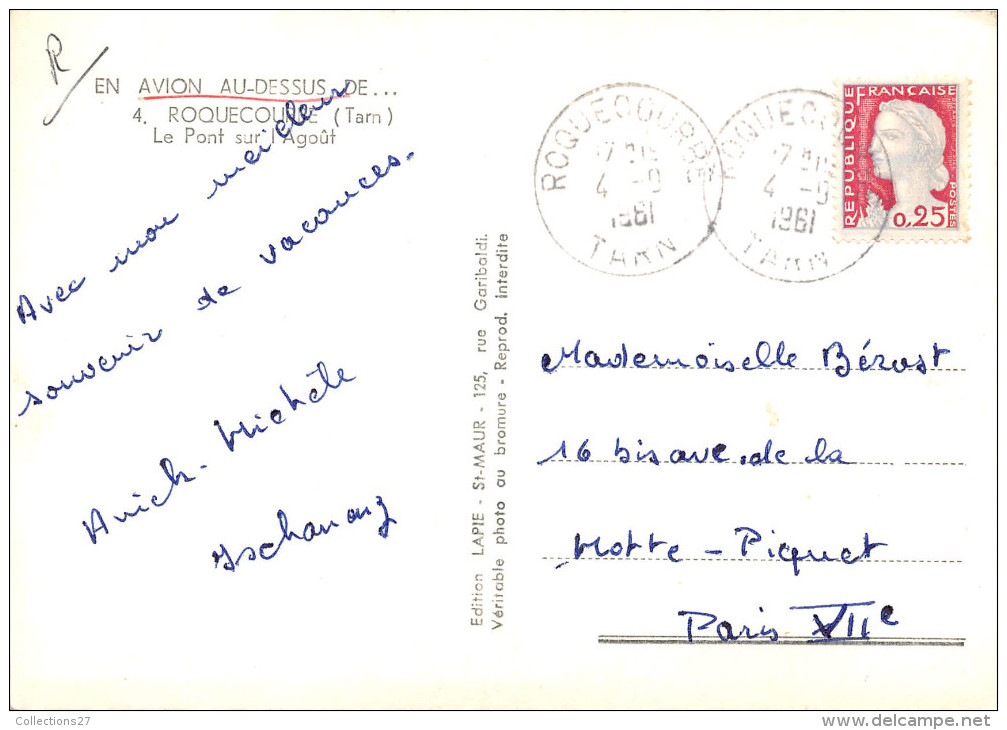 R
EN AVION AU-DESSUS DE...
4. ROQUECOURBE (Tarn)
Le Pont sur l'Agoût
Avec mon meilleur
souvenir de vacances.
Anick-Michèle
Edition LAPIE - St-MAUR - 125, rue Garibaldi.
Véritable photo au bromure - Reprod. Interdite
ROQUECOURBE
4 -9
1961
TARN
ROQUECOURBE
4 -9
1961
TARN
REPUBLIQUE FRANÇAISE
POSTES
0,25
Mademoiselle Bérost
16 bis ave. de la
Motte-Picquet
Paris VIIe
Collections27
www.delcampe.net